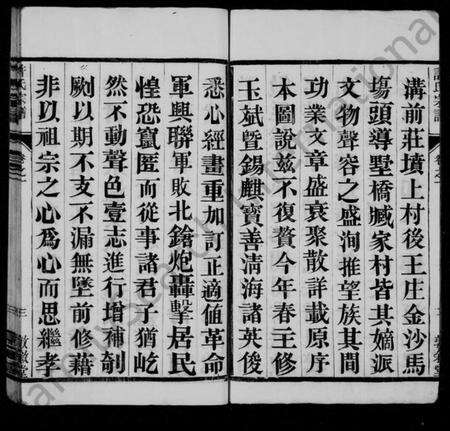 溝前莊墳上村後王庄金沙馬
塲頭導墅橋臧家村皆其嫡派
文物聲容之盛洵推望族其間
功業文章盛衰聚散詳載原序
本圖說茲不復贅今年春王修
玉斌暨錫麒寶善淸海諸英俊
悉心經畫重加訂正適值革命
軍興聯軍敗北鎗炮轟擊居民
惶恐竄匿而從事諸君子猶屹
然不動聲色壹志進行增補剞
劂以期不支不漏無墜前修藉
非以祖宗之心爲心而思繼孝